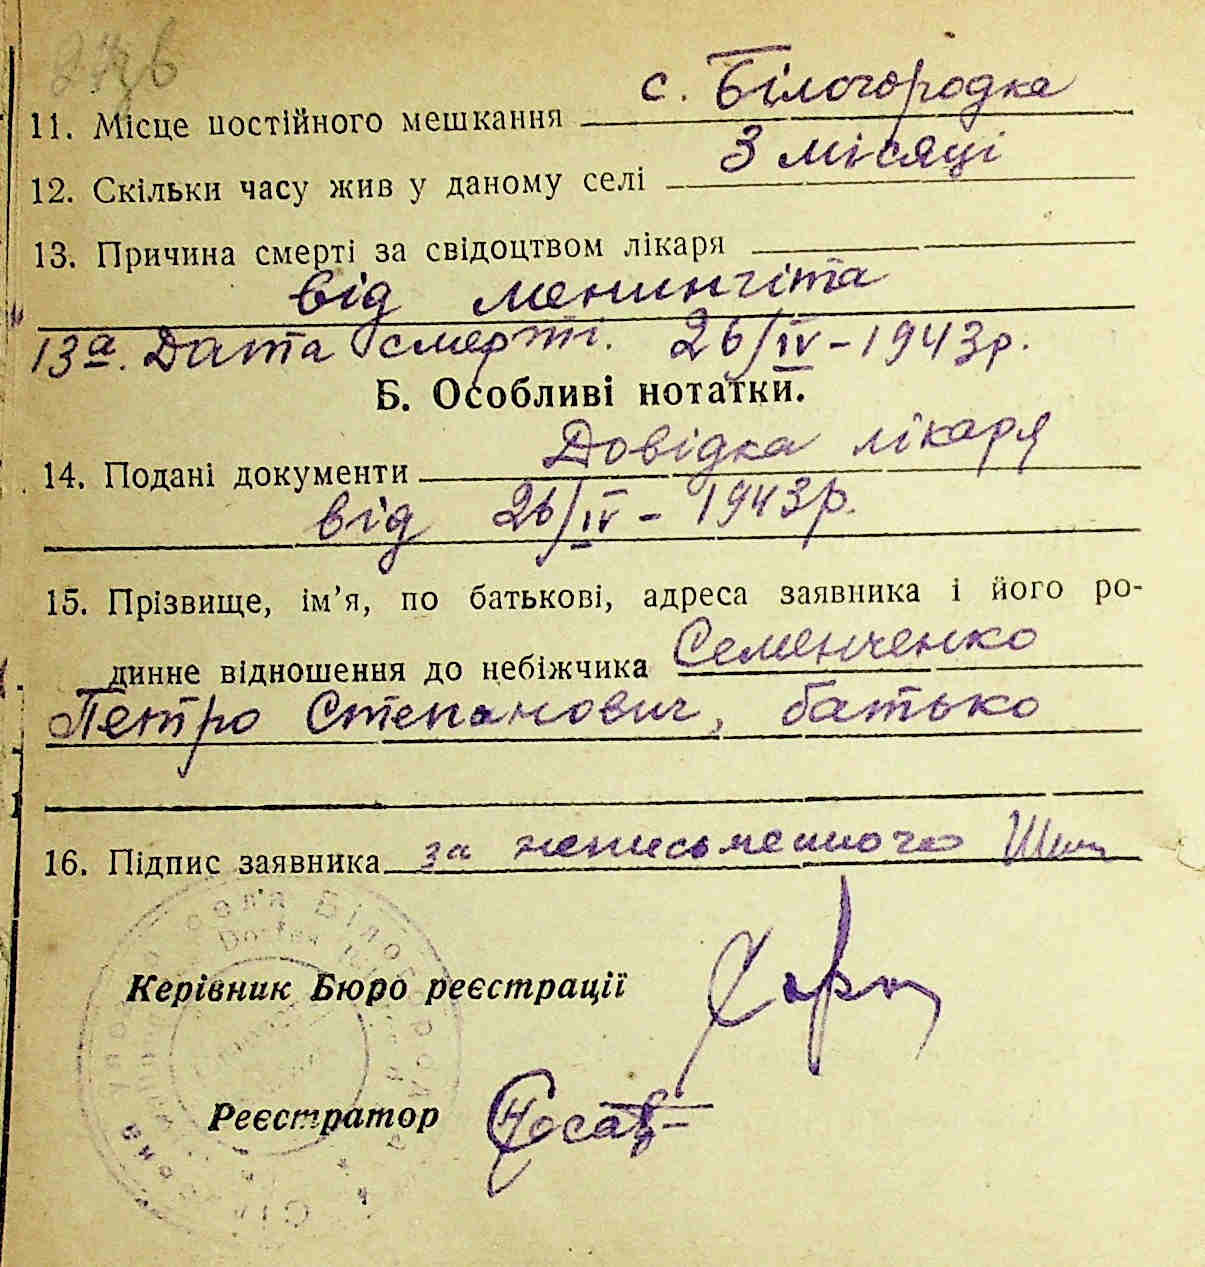 11. Місце постійного мешкання с. Білогородка
12. Скільки часу жив у даному селі 3 місяці
13. Причина смерті за свідоцтвом лікаря
від менингіта
13а. Дата смерті. 26/IV - 1943 р.
Б. Особливі нотатки.
14. Подані документи Довідка лікаря
від 26/IV - 1943 р.
15. Прізвище, ім’я, по батькові, адреса заявника і його ро-
динне відношення до небіжчика Семенченко
Петро Степанович, батько
16. Підпис заявника за неписьменного
Керівник Бюро реєстрації
Реєстратор